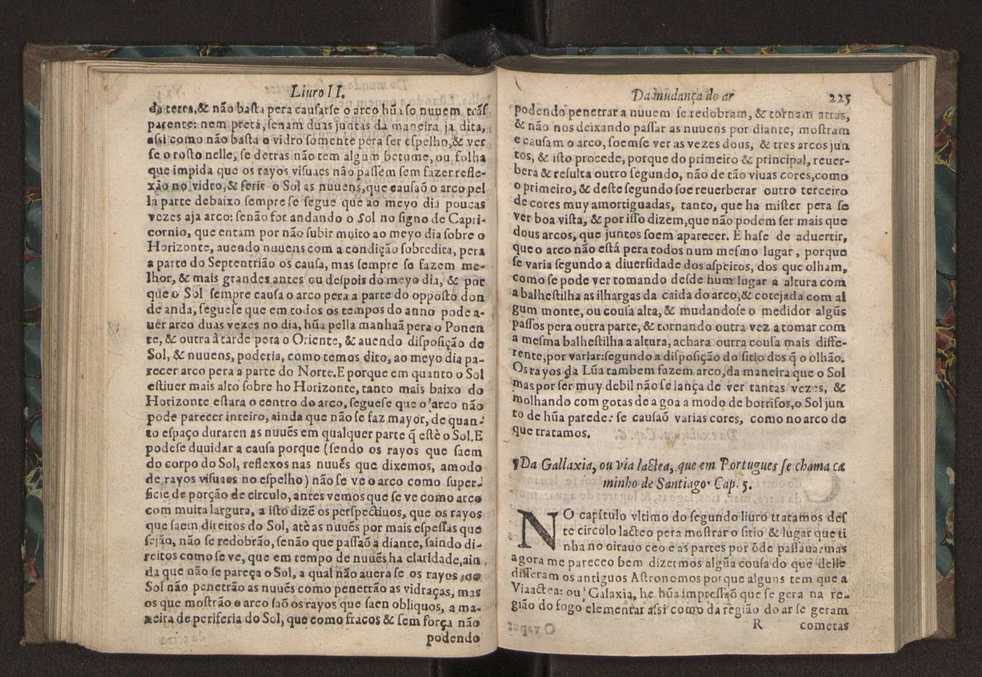 Liuro II.
da terra,& não basta pera causarse o arco hũ so nuuem trãs
parente: nem preta, senam duas juntas da maneira ja dita,
assi como não basta o vidro somente pera ser espelho,& ver
se o rosto nelle, se detras não tem algum betume, ou folha
que impida que os rayos visuaes não passem sem fazer refle-
xão no vidro,& ferir o Sol as nuuens,que causaõ o arco pel
la parte debaixo sempre se segue que ao meyo dia poucas
vezes aja arco: senão for andando o Sol no signo de Capri-
cornio, que entam por não subir muito ao meyo dia sobre o
Horizonte, auendo nuuens com a condição sobredita, pera
a parte do Septentrião os causa, mas sempre se fazem me-
lhor, & mais grandes antes ou despois do meyo dia, & por
que o Sol sempre causa o arco pera a parte do opposto don
de anda, seguese que em todos os tempos do anno pode a-
uer arco duas vezes no dia, hũa pella manhaã pera o Ponen
te, & outra à tarde pera o Oriente, & auendo disposição de
Sol, & nuuens, poderia, como temos dito, ao meyo dia pa-
recer arco pera a parte do Norte.E porque em quanto o Sol
estiuer mais alto sobre ho Horizonte, tanto mais baixo do
Horizonte estara o centro do arco, seguese que o arco não
pode parecer inteiro, ainda que não se faz mayor, de quan-
to espaço duraren as nuuẽs em qualquer parte q̃ estè o Sol.E
podese duuidar a causa porque (sendo os rayos que saem
do corpo do Sol, reflexos nas nuuẽs que dixemos, amodo
de rayos visuaes no espelho) não se ve o arco como super-
ficie de porção de circulo, antes vemos que se ve como arco
com muita largura, a isto dizẽ os perspectiuos, que os rayos
que saem direitos do Sol, atè as nuuẽs por mais espessas que
sejão, não se redobrão, senão que passaõ a diante, saindo di-
reitos como se ve, que em tempo de nuuẽs ha claridade,ain
da que não se pareça o Sol, a qual não auera se os rayos do
Sol não penetrão as nuuẽs como penetrão as vidraças, mas
os que mostrão o arco saõ os rayos que saen obliquos, a ma-
neira de periferia do Sol, que como fracos & sem força não
podendo
Da mudança do ar 225
podendo penetrar a nuuem se redobram, & tornam atras,
& não nos deixando passar as nuuens por diante, mostram
e causam o arco, soemse ver as vezes dous, & tres arcos jun
tos, & isto procede, porque do primeiro & principal, reuer-
bera & resulta outro segundo, não de tão viuas cores,como
o primeiro, & deste segundo soe reuerberar outro terceiro
de cores muy amortiguadas, tanto, que ha mister pera se
ver boa vista, & por isso dizem,que não podem ser mais que
dous arcos, que juntos soem aparecer. E hase de aduertir,
que o arco não està pera todos num mesmo lugar, porque
se varia segundo a diuersidade dos aspeitos, dos que olham,
como se pode ver tomando desde hum lugar a altura com
a balhestilha as ilhargas da caida do arco,& cotejada com al
gum monte, ou cousa alta, & mudandose o medidor algũs
passos pera outra parte, & tornando outra vez a tomar com
a mesma balhestilha a altura, achara outra cousa mais diffe-
rente,por variar segundo a disposição do sitio dos q̃ o olhão.
Os rayos da Lũa tambem fazem arco,da maneira que o Sol
mas por ser muy debil não se lança de ver tantas vezes, &
molhando com gotas de agoa a modo de borrifos,o Sol jun
to de hũa parede se causaõ varias cores, como no arco de
que tratamos.
¶Da Gallaxia, ou via lactea, que em Portugues se chama ca
minho de Santiago. Cap. 5.
NO capitulo vltimo do segundo liuro tratamos des
te circulo lacteo pera mostrar o sitio & lugar que ti
nha no oitauo ceo e as partes por õde passaua:mas
agora me pareceo bem dizermos algũa cousa do que delle
disseram os antiguos Astronomos porque alguns tem que a
Via actea: ou Galaxia, he hũa impressão que se gera na re-
gião do fogo elementar assi como da região do ar se geram
R cometas